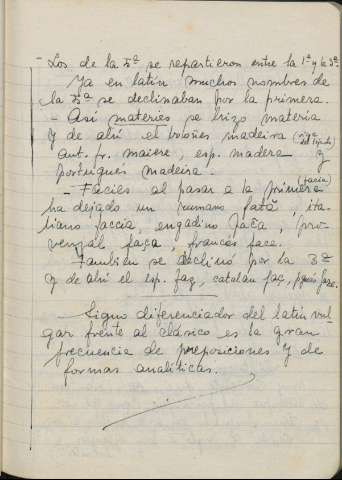 - Los de la 5ª se repartieron entre la 1ª y la 3ª.
Ya en latín muchos nombres de
la 5ª se declinaban por la primera.
- Así materies se hizo materia
y de ahí el boloñés madeira
ant. fr. maiere, esp. madera y
portugués madeira.
- Facies al pasar a la primera (facia)
ha dejado un rumano fată, ita-
liano faccia, engadino fača, pro-
venzal faça, francés face.
También se declinó por la 3ª
y de ahí el esp. faz, catalán faç,
Signo diferenciador del latín vul-
gar frente al clásico es la gran
frecuencia de preposiciones y de
formas analíticas.